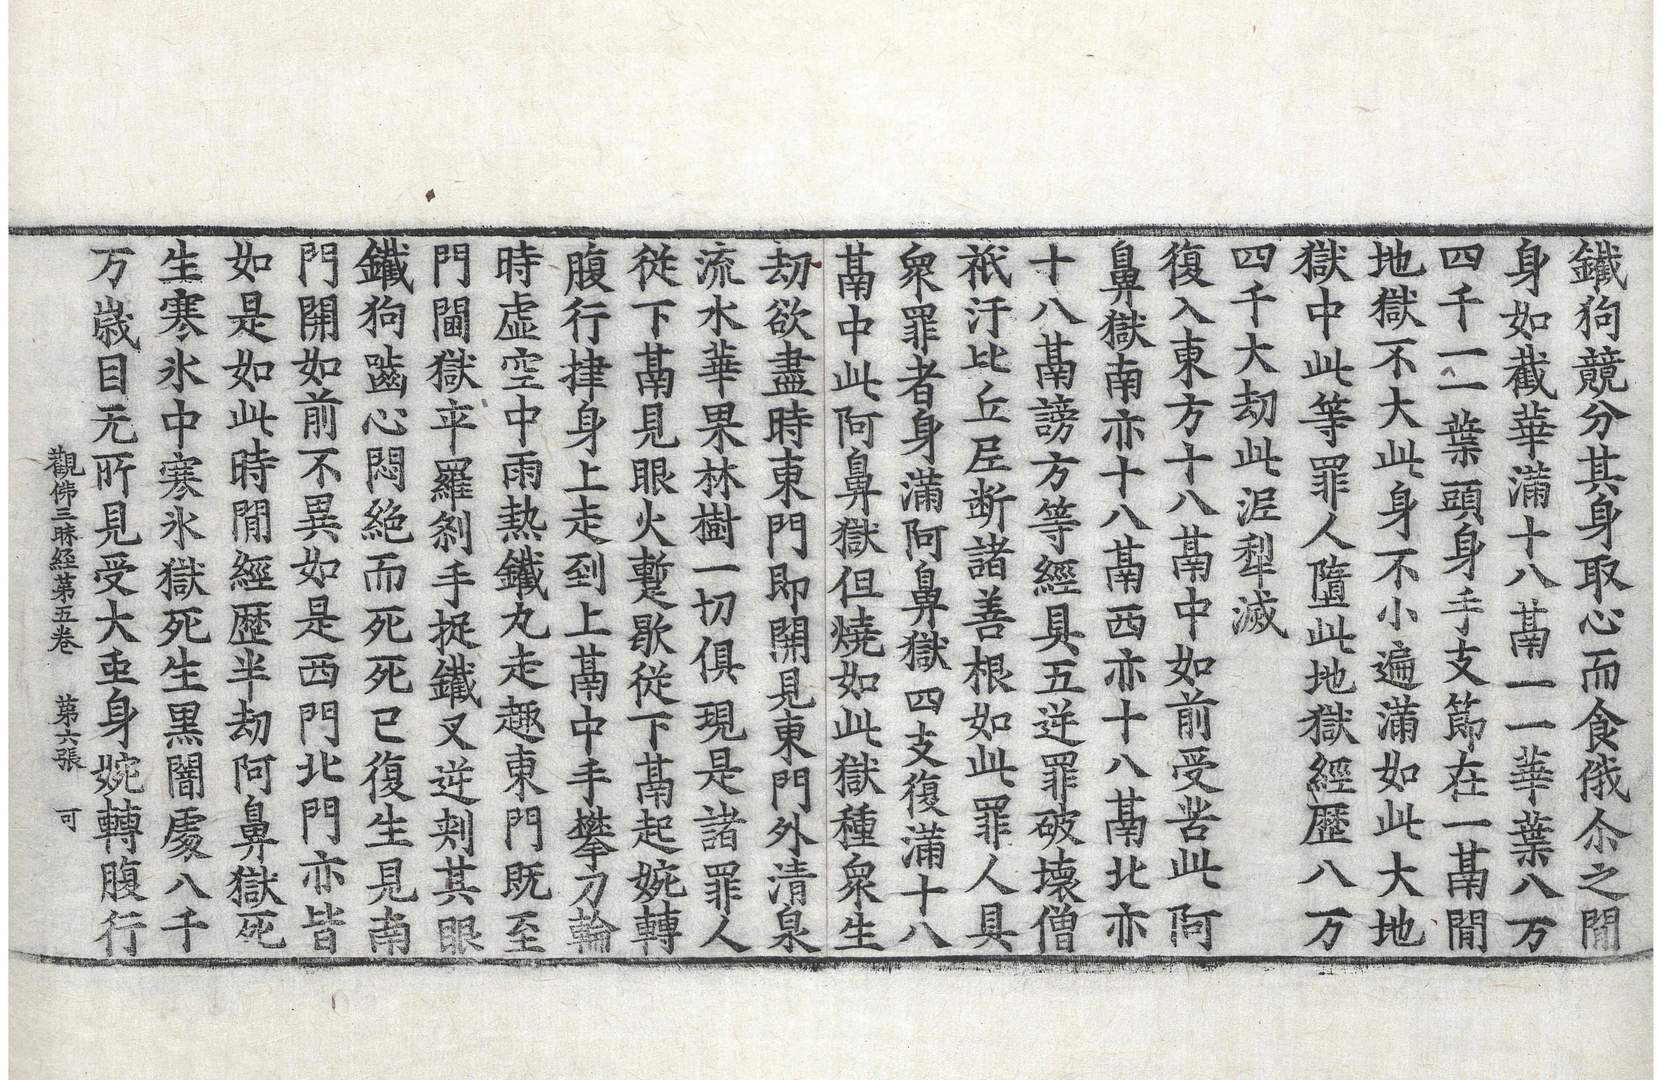 鐵狗競分其身取心而食俄尒之閒
身如截華滿十八鬲一一華葉八万
四千一一葉頭身手支節在一鬲閒
地獄不大此身不小遍滿如此大地
獄中此等罪人墮此地獄經歷八万
四千大劫此泥犁滅
復入東方十八鬲中如前受苦此阿
鼻獄南亦十八鬲西亦十八鬲北亦
十八鬲謗方等經具五逆罪破壞僧
祇汙比丘尼断諸善根如此罪人具
衆罪者身滿阿鼻獄四支復滿十八
鬲中此阿鼻獄但燒如此獄種衆生
劫欲盡時東門即開見東門外清泉
流水華果林樹一切俱現是諸罪人
從下鬲見眼火蹔歇從下鬲起婉轉
腹行挊身上走到上鬲中手攀刀輪
時虛空中雨熱鐵丸走趣東門既至
門閫獄卒羅剎手捉鐵叉逆刾其眼
鐵狗齧心悶絶而死死已復生見南
門開如前不異如是西門北門亦皆
如是如此時閒經歷半劫阿鼻獄死
生寒氷中寒氷獄死生黒闇處八千
万歲目无所見受大䖝身婉轉腹行
觀佛三昧経第五卷 第六張 可